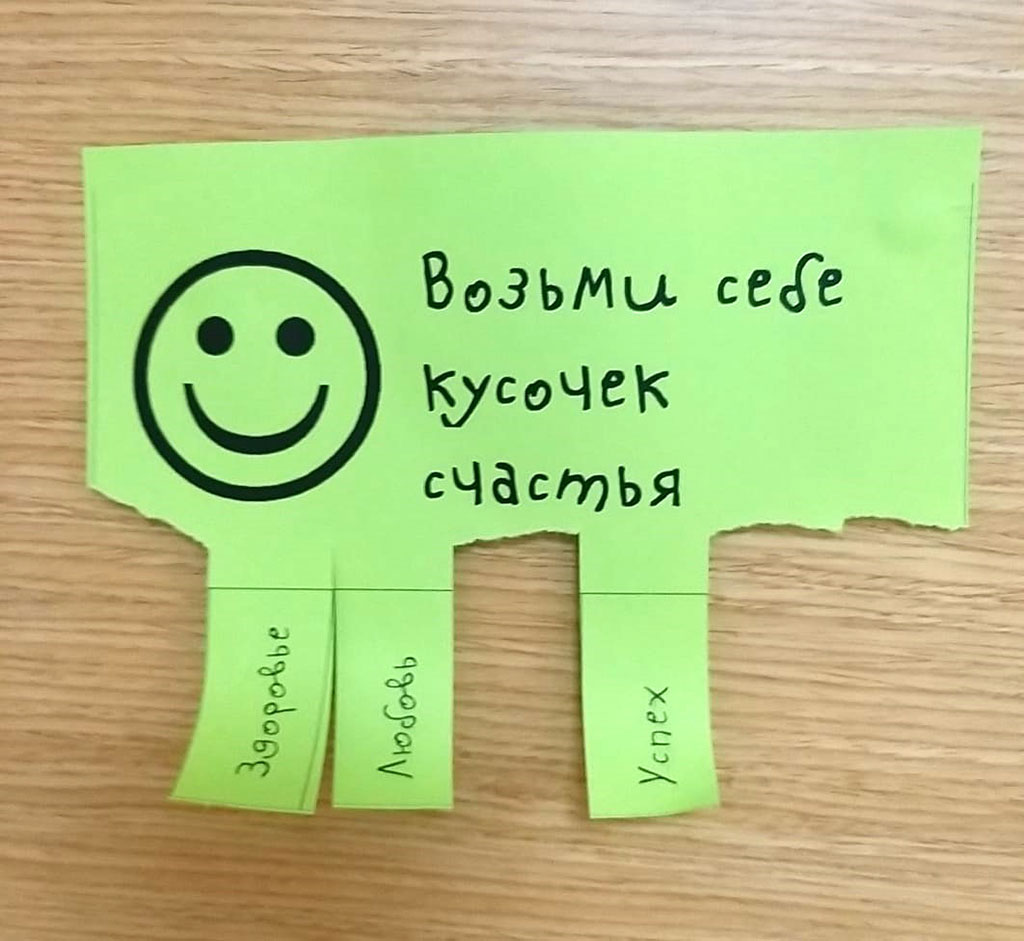 Возьми себе
кусочек
счастья
Здоровье
Любовь
Успех